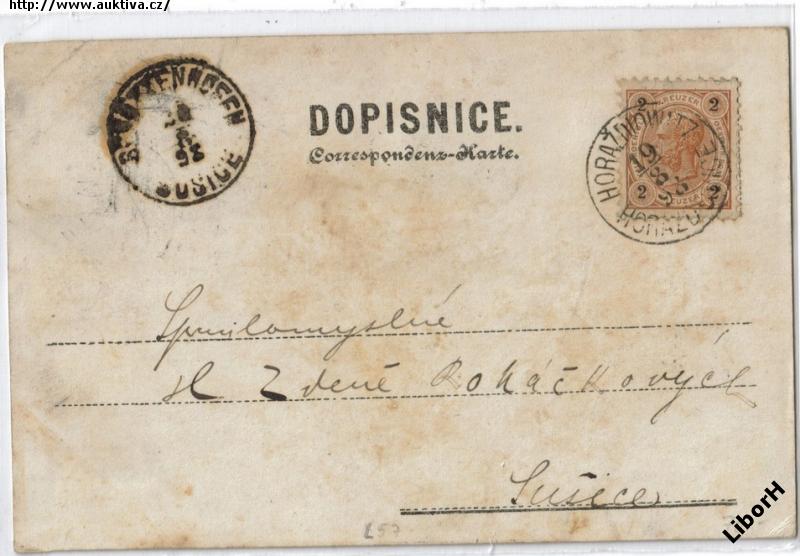 http://www.auktiva.cz/
SCHÜTTENHOFEN
SUŠICE
DOPISNICE.
Correspondenz-Karte.
2 KREUZER 2
2 KREUZER 2
HORAŽĎOWITZ
19
8
98
Spanilomyslné
sl Zdeně Roháčkovýc
Sušice
L57
LiborH